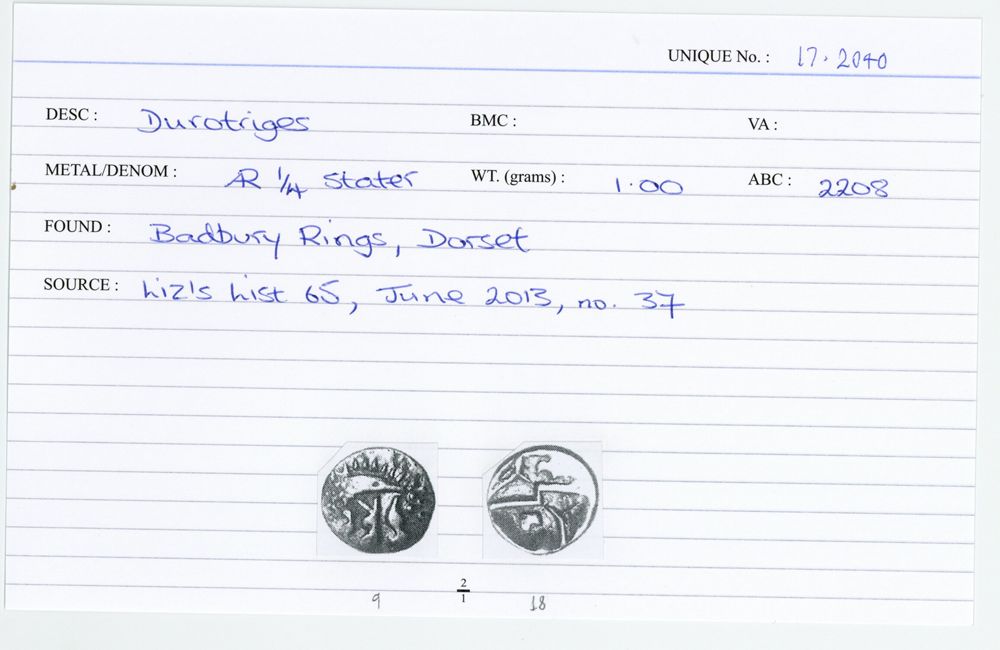 UNIQUE No. : 17.2040
DESC : Durotriges BMC : VA :
METAL/DENOM : AR 1/4 Stater WT. (grams) : 1.00 ABC : 2208
FOUND : Badbury Rings, Dorset
SOURCE : Liz's List 65, June 2013, no. 37
2
1
9 18